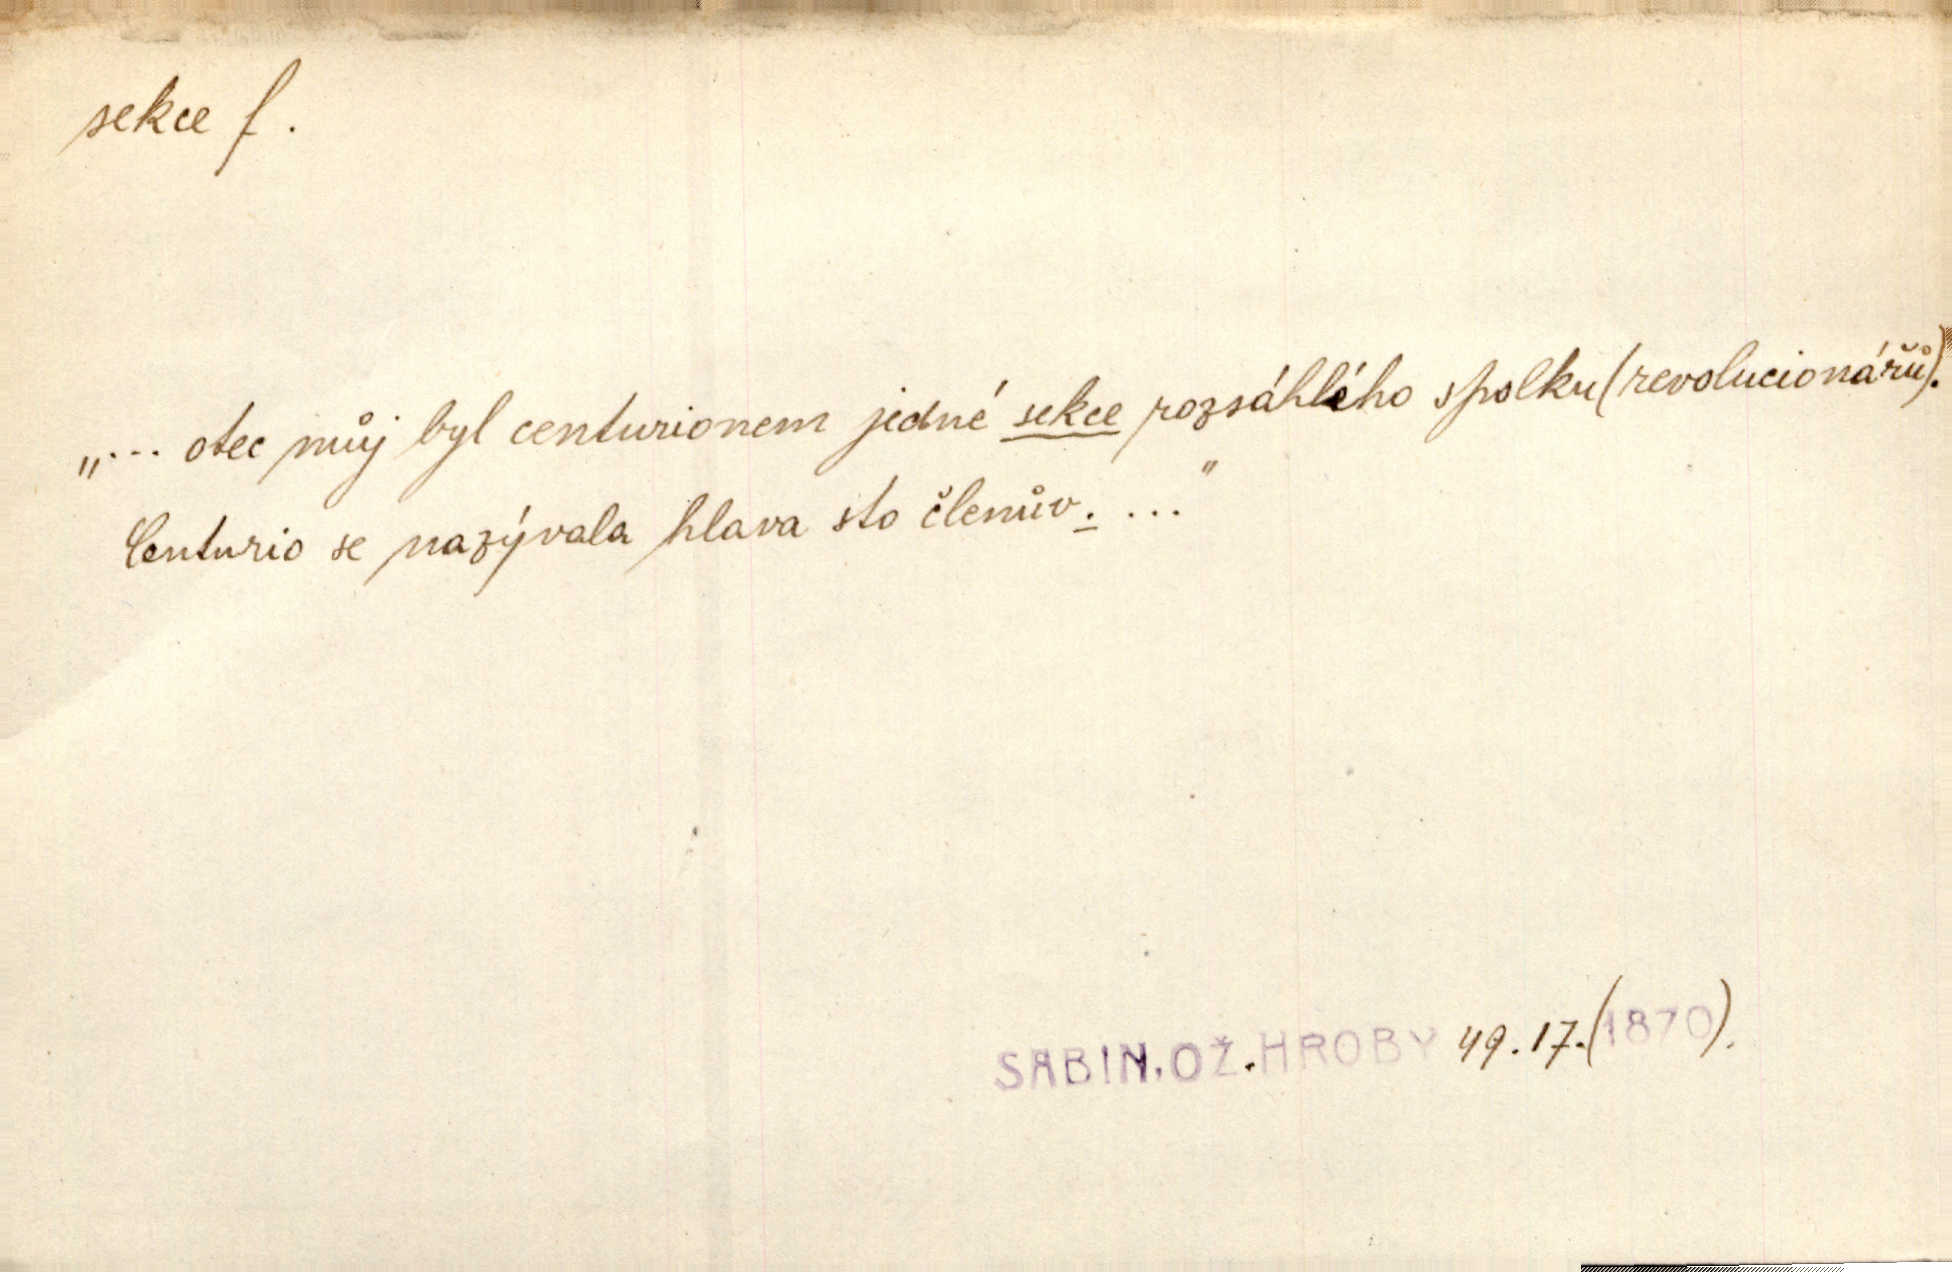 sekce f.
„... otec můj byl centurionem jedné sekce rozsáhlého spolku (revolucionářů).
Centurio se nazývala hlava sto členův. ..."
SABIN. OŽ. HROBY 49.17. (1870).